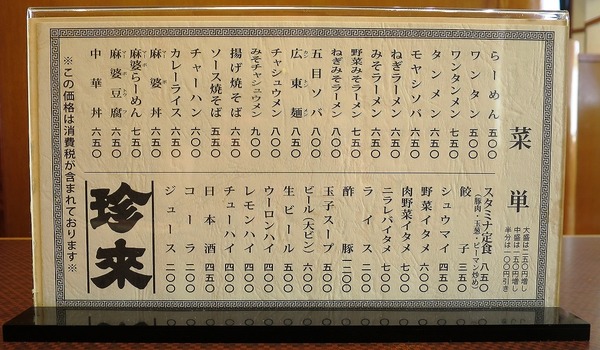 菜単
大盛は二五〇円増し
中盛は一五〇円増し
半分は一〇〇円引き
らーめん 五〇〇
ワンタン 五〇〇
ワンタンメン 七五〇
タンメン 六五〇
モヤシソバ 六五〇
ねぎラーメン 六五〇
みそラーメン 六五〇
野菜みそラーメン 七五〇
ねぎみそラーメン 八〇〇
五目ソバ 八〇〇
広東麺 八五〇
チャシュウメン 八〇〇
みそチャシュウメン 九〇〇
揚げ焼そば 六五〇
ソース焼そば 五五〇
チャーハン 六〇〇
カレーライス 六五〇
麻婆丼 七五〇
麻婆らーめん 七五〇
麻婆豆腐 六五〇
中華丼 六五〇
※この価格は消費税が含まれております※
スタミナ定食 八五〇
(豚肉・玉葱・ピーマン炒め)
餃子 三五〇
シュウマイ 四五〇
野菜イタメ 六〇〇
肉野菜イタメ 七〇〇
ニラレバイタメ 七〇〇
ライス 二〇〇
酢豚 一二〇〇
玉子スープ 五〇〇
ビール(大ビン) 六〇〇
生ビール 五〇〇
ウーロンハイ 四〇〇
レモンハイ 四五〇
チューハイ 四〇〇
日本酒 四五〇
コーラ 二〇〇
ジュース 二〇〇
珍来